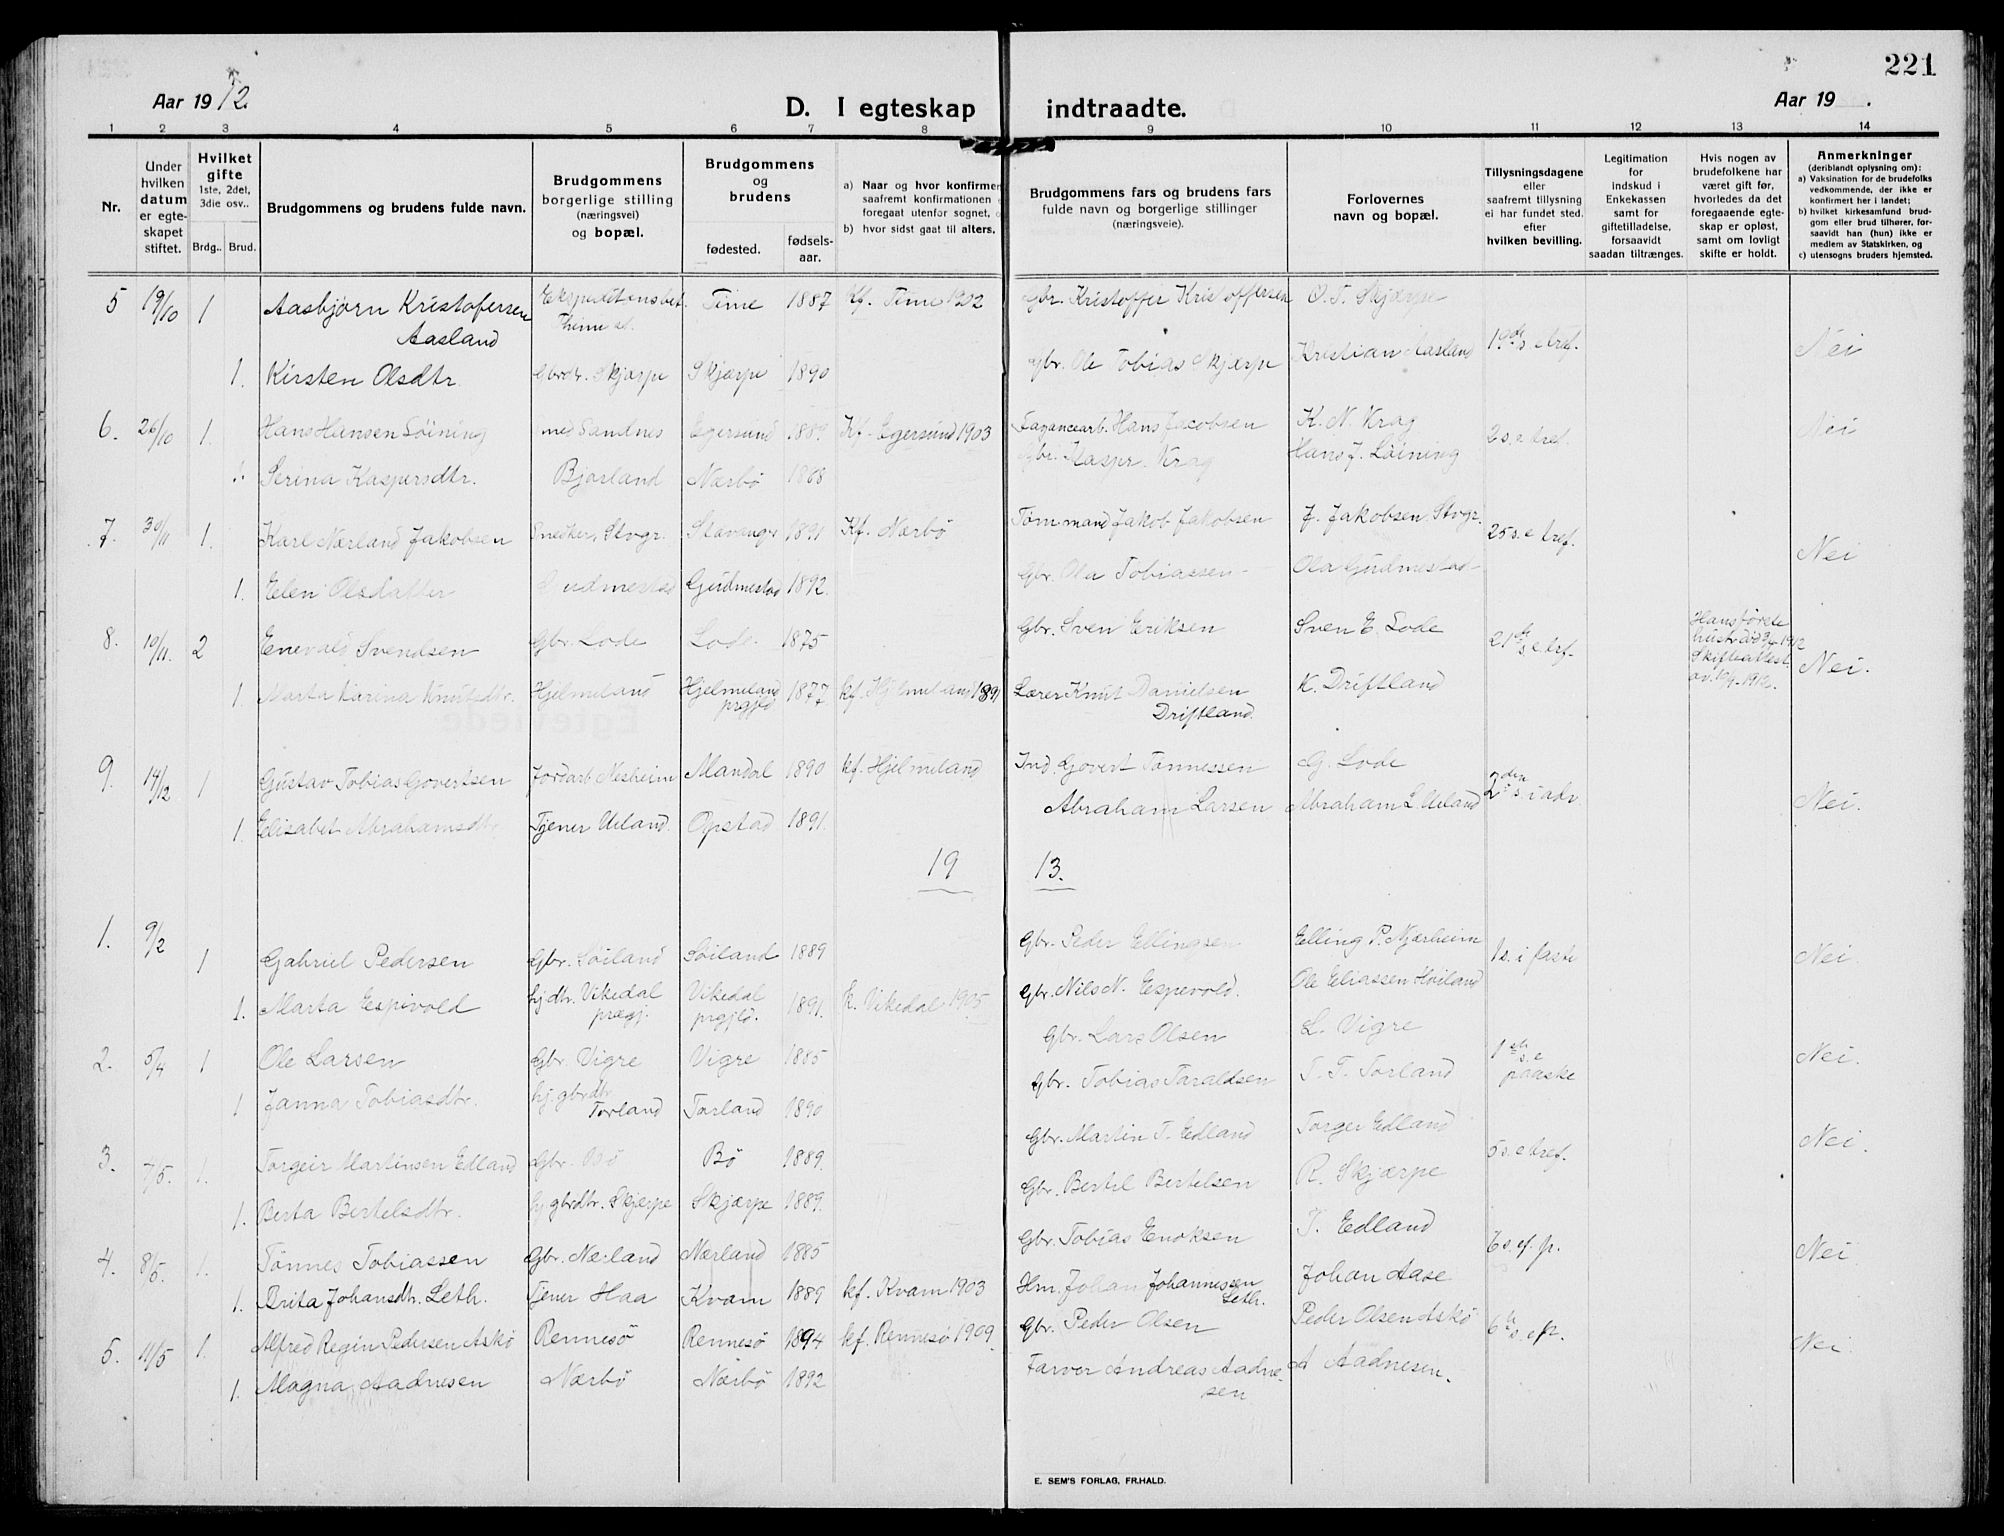 221
Aar 1912.
D. I egteskap indtraadte.
Aar 19 .
1 2 3 4 5 6 7 8 9 10 11 12 13 14
Nr.
Under hvilken datum er egte-skapet stiftet.
Hvilket gifte 1ste, 2det, 3die osv..
Brdg.. Brud.
Brudgommens og brudens fulde navn.
Brudgommens borgerlige stilling (næringsvei) og bopæl.
Brudgommens og brudens
fødested.
fødsels-aar.
a) Naar og hvor konfirmer
saafremt konfirmationen
foregaat utenfor sognet,
b) hvor sidst gaat til alters.
Brudgommens fars og brudens fars
fulde navn og borgerlige stillinger
(næringsveie).
Forlovernes
navn og bopæl.
Tillysningsdagene
eller
saafremt tillysning
ei har fundet sted.
efter
hvilken bevilling.
Legitimation
for
indskud i
Enkekassen
samt for
giftetilladelse,
forsaavidt
saadan tiltrænges.
Hvis nogen av
brudefolkene har
været gift før,
hvorledes da det
foregaaende egte-
skap er opløst,
samt om lovligt
skifte er holdt.
Anmerkninger
(deriblandt oplysning om):
a) Vaksination for de brudefolks
vedkommende, der ikke er
konfirmert her i landet;
b) hvilket kirkesamfund brud-
gom eller brud tilhører, for-
saavidt han (hun) ikke er
medlem av Statskirken, og
c) utensogns bruders hjemsted.
5 19/10 1 Aasbjørn Kristofersen Aasland Ekspeditionsbet. Thime st. Time 1887 Kf. Time 1902 Gbr. Kristoffer Kristoffersen O. T. Skjærpe 19de s. e. tref. Nei
1. Kirsten Olsdtr. Gbrdtr. Skjærpe Skjærpe 1890 Gbr. Ole Tobias Skjærpe Kristian Aasland
6. 26/10 1. Hans Hansen Löining Sandnes Egersund 1889 Kf. Egersund 1903 Fayancearb. Hans Jacobsen K. N. Krag 2 s. e. tref. Nei
1. Serina Kaspersdtr. Bjorland Nærbö 1868 Gbr. Kaspr. Krag Hans J. Löining
7. 30/11 1. Karl Nærland Jakobsen Snedker, Stvgr. Stavanger 1891 Kf. Nærbö Tømmand Jakob Jakobsen J. Jakobsen Stvgr. 25 s. e. tref. Nei
1. Elen Olsdatter Gudmestad Gudmestad 1892. Gbr. Ola Tobiassen Ola Gudmestad
8. 10/11. 2 Enevald Svendsen Gbr. Lode Lode 1875 Gbr. Sven Eriksen Sven E. Lode 21de s. e. tref. Hans første hustru død 1912 Skifteattest av 1912. Nei.
1 Marta Karina Knutsdtr. Hjelmeland Hjelmeland prgjld 1877. kf. Hjelmeland 1891 Lærer Knut Danielsen Driftland. K. Driftland
9. 14/12 1 Gustav Tobias Govertsen Jordarb. Nesheim Mandal 1890 kf. Hjelmeland Ind. Govert Tønnessen G. Lode 2den s. i adv. Nei.
1. Elisabet Abrahamsdtr. Tjener Ueland. Opstad 1891. Abraham Larsen Abraham L. Ueland
19 13.
1. 9/2 1 Gabriel Pedersen Gbr. Söiland Söiland 1889 Gbr. Peder Ellingsen Elling P. Njærheim 1 s. i faste Nei.
1. Marta Espevold hj. dtr. Vikedal prægj. Vikedal prgjld. 1891. k. Vikedal 1905 Gbr. Nils N. Espevold. Ole Eliassen Høiland
2. 5/4 1 Ole Larsen Gbr. Vigre Vigre 1885 Gbr. Lars Olsen L. Vigre 1ste s. e. paaske Nei.
1 Janna Tobiasdtr. hj. gbrdtr. Torland Torland 1890 Gbr. Tobias Taraldsen T. T. Torland
3. 7/5. 1. Torgeir Martinsen Edland Gbr. Bö Bö 1889. Gbr. Martin T. Edland Torger Edland 5 s. e. tref. Nei.
1. Berta Bertelsdtr. hj. gbrdtr. Skjærpe Skjærpe 1889. Gbr. Bertil Bertelsen R. Skjærpe
4. 8/5. 1. Tönnes Tobiassen Gbr. Nærland Nærland 1885 Gbr. Tobias Enoksen T. Edland 6 s. ef. p. Nei
1. Brita Johansdtr. Leth. Tjener Haa Kvam 1889 kf. Kvam 1903 Hm. Johan Johannessen Leth. Johan Aase
5. 11/5 1. Alfred Regin Pedersen Askö Rennesö Rennesö 1894 kf. Rennesö 1909. Gbr. Peder Olsen Peder Olsen Askö 6te s. e. p. Nei.
1. Magna Aadnesen Nærbö Nærbö 1892 Farver Andreas Aadnesen A Aadnesen.
E. SEM'S FORLAG, FR.HALD.